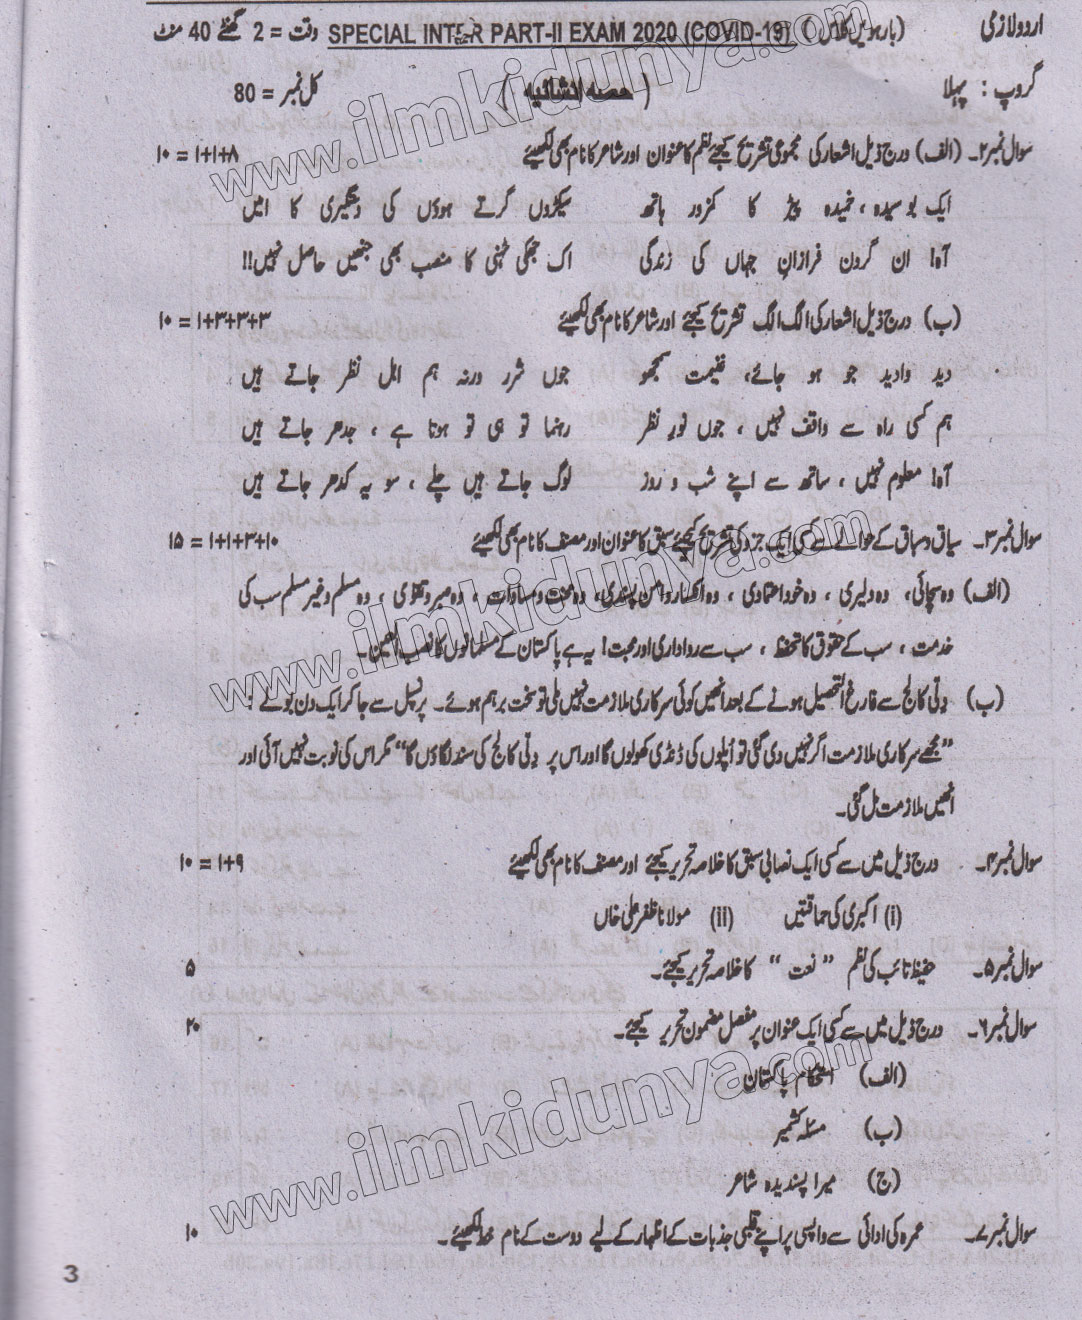 اردو لازمی (بارہویں کلاس) SPECIAL INTER PART-II EXAM 2020 (COVID-19) وقت = 2 گھنٹے 40 منٹ
گروپ : پہلا ( حصہ انشائیہ ) کل نمبر = 80
سوال نمبر ۲۔ (الف) درج ذیل اشعار کی مجموعی تشریح کیجئے نظم کا عنوان اور شاعر کا نام بھی لکھیئے ۸+۱+۱ = ۱۰
ایک بوسیدہ ، خمیدہ پیڑ کا کمزور ہاتھ سیکڑوں گرتے ہوؤں کی دستگیری کا امیں
آہ! ان گردن فرازانِ جہاں کی زندگی اک جھکی ٹہنی کا منصب بھی جنھیں حاصل نہیں!!
(ب) درج ذیل اشعار کی الگ الگ تشریح کیجئے اور شاعر کا نام بھی لکھیئے ۳+۳+۳+۱ = ۱۰
دید وادید جو ہو جائے، غنیمت سمجھو جوں شرر ورنہ ہم اہل نظر جاتے ہیں
ہم کسی راہ سے واقف نہیں ، جوں نورِ نظر رہنما تو ہی تو ہوتا ہے ، جدھر جاتے ہیں
آہ! معلوم نہیں ، ساتھ سے اپنے شب و روز لوگ جاتے ہیں چلے ، سو یہ کدھر جاتے ہیں
سوال نمبر ۳۔ سیاق و سباق کے حوالے سے کسی ایک جزو کی تشریح کیجئے سبق کا عنوان اور مصنف کا نام بھی لکھیئے ۱۰+۳+۱+۱ = ۱۵
(الف) وہ سچائی، وہ دلیری ، وہ خود اعتمادی ، وہ انکسار و امن پسندی، وہ محنت و مساوات ، وہ صبر و تقویٰ ، وہ مسلم و غیر مسلم سب کی
خدمت ، سب کے حقوق کا تحفظ ، سب سے رواداری اور محبت! یہ ہے پاکستان کے مسلمانوں کا نصب العین۔
(ب) دِلّی کالج سے فارغ التحصیل ہونے کے بعد انھیں کوئی سرکاری ملازمت نہیں ملی تو سخت برہم ہوئے۔ پرنسپل سے جا کر ایک دن بولے :
"مجھے سرکاری ملازمت اگر نہیں دی گئی تو اُپلوں کی ڈنڈی کھولوں گا اور اس پر دِلّی کالج کی سند لگاؤں گا" مگر اس کی نوبت نہیں آئی اور
انھیں ملازمت مل گئی۔
سوال نمبر ۴۔ درج ذیل میں سے کسی ایک نصابی سبق کا خلاصہ تحریر کیجئے اور مصنف کا نام بھی لکھیئے ۹+۱ = ۱۰
(i) اکبری کی حماقتیں (ii) مولانا ظفر علی خاں
سوال نمبر ۵۔ حفیظ تائب کی نظم " نعت " کا خلاصہ تحریر کیجئے۔ ۵
سوال نمبر ۶۔ درج ذیل میں سے کسی ایک عنوان پر مفصل مضمون تحریر کیجئے۔ ۲۰
(الف) استحکام پاکستان
(ب) مسئلہ کشمیر
(ج) میرا پسندیدہ شاعر
سوال نمبر ۷۔ عمرہ کی ادائی سے واپسی پر اپنے قلبی جذبات کے اظہار کے لیے دوست کے نام خط لکھیئے۔ ۱۰
3
www.ilmkidunya.com
www.ilmkidunya.com
www.ilmkidunya.com